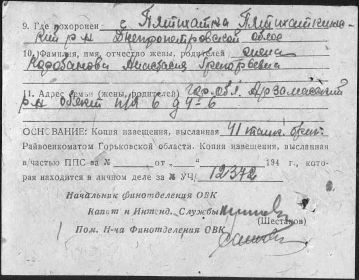 9. Где похоронен с Пятихатка Пятихатский
р-н Днепропетровской обл
10. Фамилия, имя, отчество жены, родителей жена
Карабанова Анастасия Григорьевна
11. Адрес семьи (жены, родителей) Горобл. Арзамасский
р-н объект п/я 6 д 4-6
ОСНОВАНИЕ: Копия извещения, высланная
Райвоенкоматом Горьковской области. Копия извещения, высланная
в/частью ППС за № от „ “ 194 г., кото-
рая находится в личном деле за № УЧ/ 12372
Начальник Финотделения ОВК
Капит и Интенд. Службы
(Шестаков)
Пом. Н-ка Финотделения ОВК